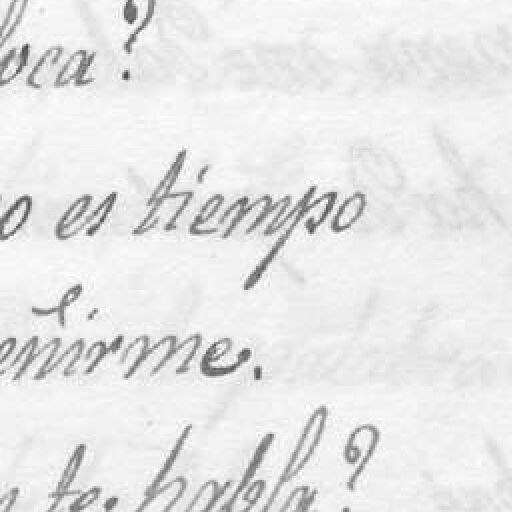 loca?
o es tiempo
eñirme.
n te habla?